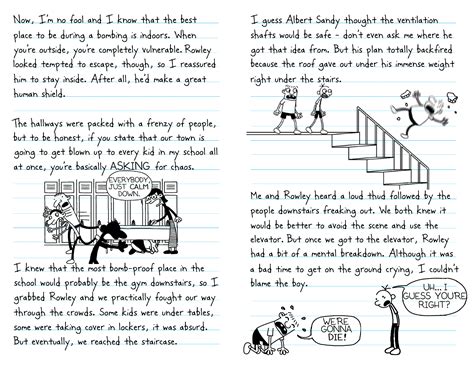 Now, I'm no fool and I know that the best
place to be during a bombing is indoors. When
you're outside, you're completely vulnerable. Rowley
looked tempted to escape, though, so I reassured
him to stay inside. After all, he'd make a great
human shield.
The hallways were packed with a frenzy of people,
but to be honest, if you state that our town is
going to get blown up to every kid in my school all
at once, you're basically ASKING for chaos.
EVERYBODY,
JUST CALM
DOWN.
I knew that the most bomb-proof place in the
school would probably be the gym downstairs, so I
grabbed Rowley and we practically fought our way
through the crowds. Some kids were under tables,
some were taking cover in lockers, it was absurd.
But eventually, we reached the staircase.
I guess Albert Sandy thought the ventilation
shafts would be safe - don't even ask me where he
got that idea from. But his plan totally backfired
because the roof gave out under his immense weight
right under the stairs.
Me and Rowley heard a loud thud followed by the
people downstairs freaking out. We both knew it
would be better to avoid the scene and use the
elevator. But once we got to the elevator, Rowley
had a bit of a mental breakdown. Although it was
a bad time to get on the ground crying, I couldn't
blame the boy.
WE'RE
GONNA
DIE!
UH... I
GUESS YOU'RE
RIGHT?